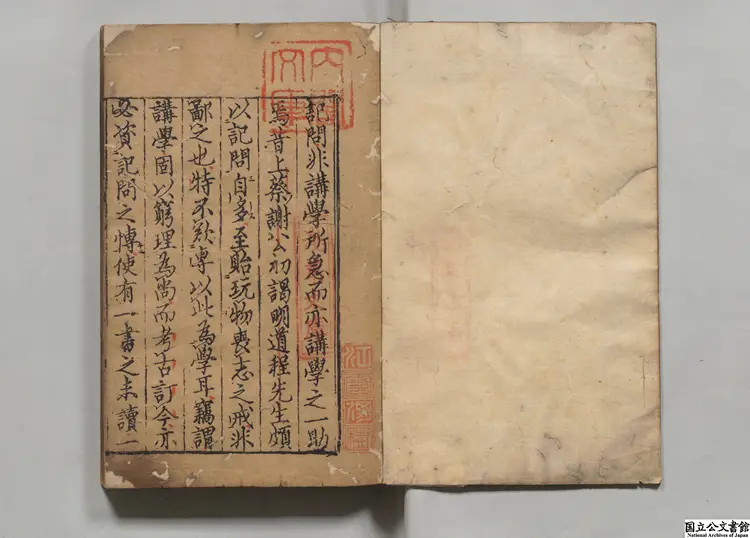 記問非講學所急而亦講學之一助
焉昔上蔡謝公初謁明道程先生頗
以記問自多至貽玩物喪志之戒非
鄙之也特不欲專以此為學耳竊謂
講學固以窮理為尚而考古訂今亦
必資記問之愽使有一書之未讀一
内閣文庫
国立公文書館
National Archives of Japan